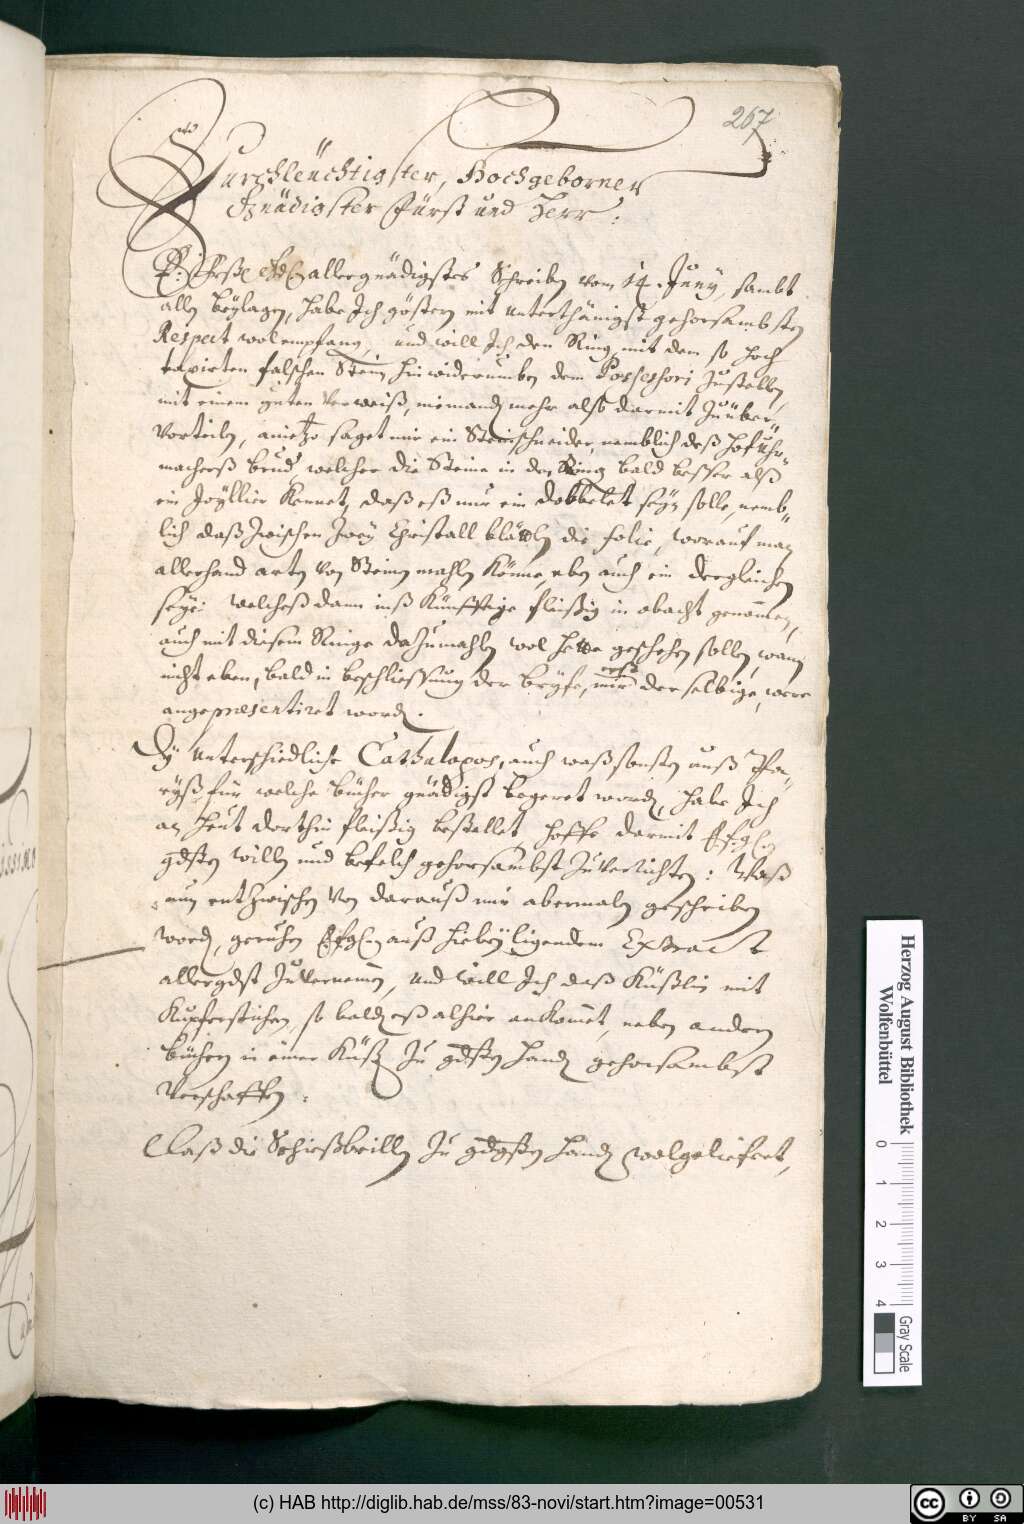 267
Durchleüchtigster, Hochgeborner
Gnädigster Fürst und Herr:
allergnädigstes Schreiben vom 14. Juny, sambt
allen beylagen, habe Ich gestern mit underthänigst gehorsambsten
Respect wol empfang, und will Ich den Ring mit dem so hoch
taxirten falschen Stein hinwiderumben dem Possessori zustellen,
mit einem guten Verweiß, niemandz mehr alß darmit zuüber-
vorteiln, anietzo saget mir ein Steinschneider, nemblich deß hofuhr-
macherß brud welcher die Steine in den Ring bald besser alß
ein Joÿllier kennet, daß eß nur ein dobbelet seyn solle, nemb-
lich daß zwischen zwey Christall blättln die folie, worauf man
allerhand arten von Steinen mahlen könne, eben auch ein dergleichen
seye: welcheß dann inß künfftige fleißig in obacht genommen,
auch mit diesem Ringe dazumahlen wol hette geschehen sollen, wann
nicht eben, bald in beschliessung der brÿfe, mir erst derselbige, were
angepræsentiret word.
Dÿ unterschiedliche Cathalogos, auch waß sonsten auß Pa-
ryß für welche bücher gnädigst begeret word, habe Ich
an heut dorthin fleißig bestellet, hoffe darmit E.f.g.
gdsten willen und befelch gehorsambst zuverrichten: Waß
nun entzwischen von darauß mir abermaln geschriben
word, geruhen E.f.g. auß hiebeÿ ligendem Extract
allergdst zuvernemen, und will Ich daß Küstlin mit
Kupferstichen, so bald eß alhier ankommet, neben andern
büchern in einer Küst zu gdsten Hand gehorsambst
verschaffen:
Daß die Schießbrillen zu gdgsten Hand wolgeliefert,
Herzog August Bibliothek
Wolfenbüttel
0 1 2 3 4
Gray Scale
(c) HAB http://diglib.hab.de/mss/83-novi/start.htm?image=00531
cc BY SA